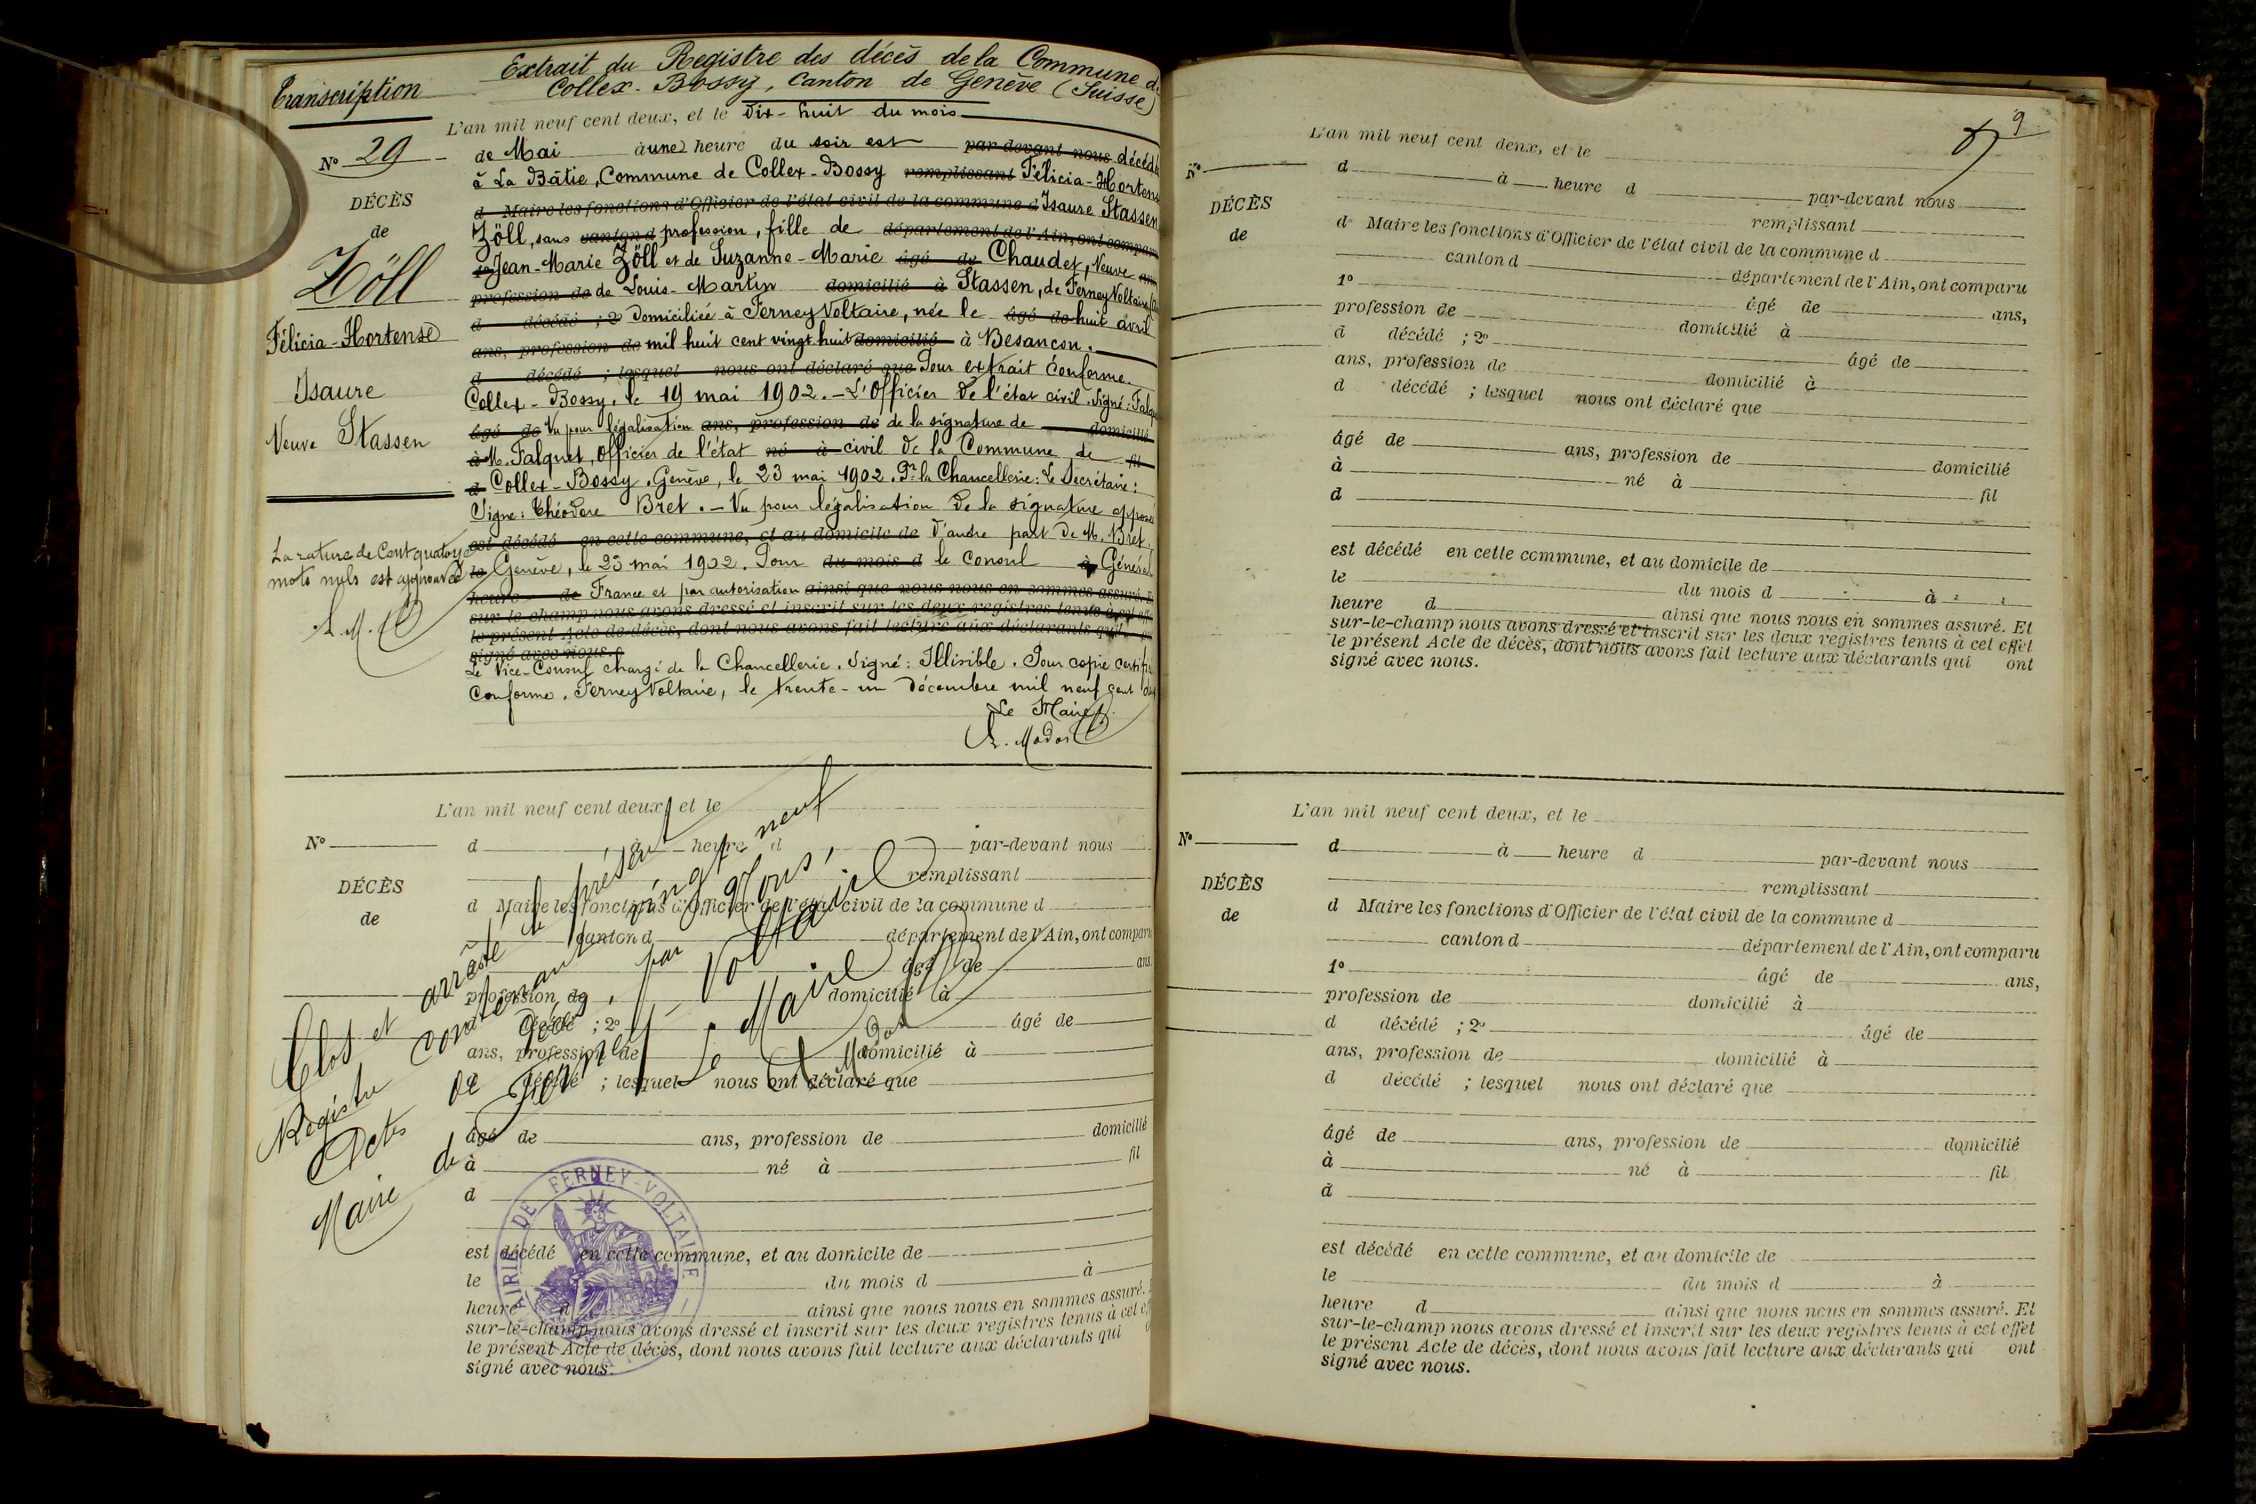 Transcription
Extrait du Registre des décès de la Commune de
Collex-Bossy, Canton de Genève (Suisse)
L'an mil neuf cent deux, et le Dix-huit du mois
N° 29
de Mai à une heure du soir est par-devant nous décédée
à La Bâtie, Commune de Collex-Bossy remplissant Félicia-Hortense
DÉCÈS
d Maire les fonctions d'Officier de l'état civil de la commune d Isaure Stassen
de
Zöll, sans canton d profession, fille de département de l'Ain, ont comparu
Zöll
Jean-Marie Zöll et de Suzanne-Marie âgé de Chaudet, Veuve ans
profession de de Louis-Martin domicilié à Stassen, de Ferney Voltaire
d décédé ; 2° Domiciliée à Ferney Voltaire, née le âgé de huit avril
Félicia-Hortense
ans, profession de mil huit cent vingt huit domicilié à Besancon.
d décédé ; lesquel nous ont déclaré que Pour extrait conforme.
Isaure
Collex-Bossy, le 19 mai 1902. - L'Officier de l'état civil. Signé: Falquet
Veuve Stassen
âgé de Vu pour légalisation ans, profession de de la signature de domicilié
à M. Falquet, Officier de l'état né à civil de la Commune de fil
d Collex-Bossy. Genève, le 23 mai 1902. Pr la Chancellerie: Le Secrétaire:
Signé: Théodore Bret. - Vu pour légalisation de la signature apposée
est décédé en cette commune, et au domicile de d'autre part de M. Bret.
La rature de Cent quatorze
mots nuls est approuvée
L. M.
le Genève, le 23 mai 1902. Pour du mois d le Consul à Général
heure de France et par autorisation ainsi que nous nous en sommes assuré. Et
sur-le-champ nous avons dressé et inscrit sur les deux registres tenus à cet effet
le présent Acte de décès, dont nous avons fait lecture aux déclarants qui
signé avec nous.
Le Vice-Consul chargé de la Chancellerie. Signé: Illisible. Pour copie certifiée
Conforme. Ferney Voltaire, le trente-un Décembre mil neuf cent deux
Le Maire
L. Modas
L'an mil neuf cent deux, et le
N°
d à heure d par-devant nous
remplissant
DÉCÈS
d Maire les fonctions d'Officier de l'état civil de la commune d
de
canton d département de l'Ain, ont comparu
âgé de ans
profession de domicilié à
décédé ; 2° âgé de
ans, profession de domicilié à
d décédé ; lesquel nous ont déclaré que
âgé de ans, profession de domicilié
à né à fil
d
est décédé en cette commune, et au domicile de
le du mois d à
heure d ainsi que nous nous en sommes assuré.
sur-le-champ nous avons dressé et inscrit sur les deux registres tenus à cet eff
le présent Acte de décès, dont nous avons fait lecture aux déclarants qui
signé avec nous.
Clos et arrêté le présent
Registre contenant vingt-neuf
Actes de Décès, par Nous,
Maire de Ferney-Voltaire
Le Maire
MAIRIE DE FERNEY-VOLTAIRE
9
L'an mil neuf cent deux, et le
N°
d à heure d par-devant nous
remplissant
DÉCÈS
de
d Maire les fonctions d'Officier de l'état civil de la commune d
canton d département de l'Ain, ont comparu
1° âgé de ans,
profession de domicilié à
d décédé ; 2° âgé de
ans, profession de domicilié à
d décédé ; lesquel nous ont déclaré que
âgé de ans, profession de domicilié
à né à fil
d
est décédé en cette commune, et au domicile de
le du mois d à
heure d ainsi que nous nous en sommes assuré. Et
sur-le-champ nous avons dressé et inscrit sur les deux registres tenus à cet effet
le présent Acte de décès, dont nous avons fait lecture aux déclarants qui ont
signé avec nous.
L'an mil neuf cent deux, et le
N°
d à heure d par-devant nous
remplissant
DÉCÈS
de
d Maire les fonctions d'Officier de l'état civil de la commune d
canton d département de l'Ain, ont comparu
1° âgé de ans,
profession de domicilié à
d décédé ; 2° âgé de
ans, profession de domicilié à
d décédé ; lesquel nous ont déclaré que
âgé de ans, profession de domicilié
à né à fil
d
est décédé en cette commune, et au domicile de
le du mois d à
heure d ainsi que nous nous en sommes assuré. Et
sur-le-champ nous avons dressé et inscrit sur les deux registres tenus à cet effet
le présent Acte de décès, dont nous avons fait lecture aux déclarants qui ont
signé avec nous.